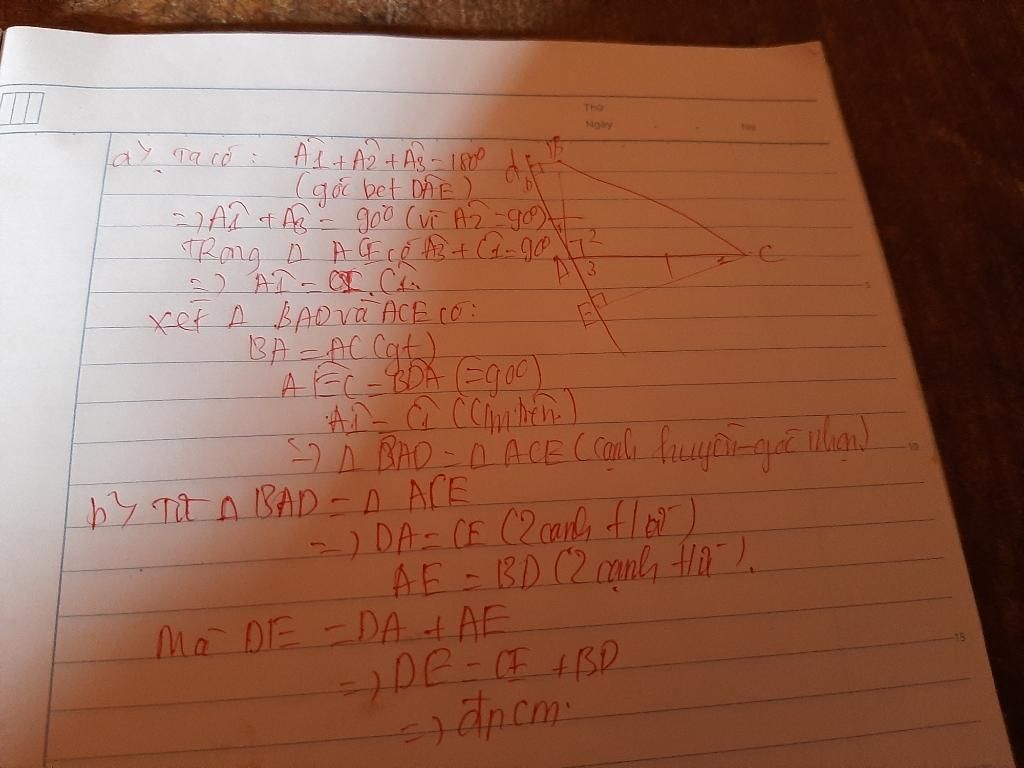 Thứ
Ngày
No
a) Ta có: Â1 + Â2 + Â3 = 180°
(góc bẹt DAE)
=> Â1 + Â3 = 90° (vì Â2 = 90°)
Trong Δ ACE có Â3 + Ĉ1 = 90
=> Â1 = Ĉ1.
xét Δ BAD và ACE có:
BA = AC (gt)
AÊC = BDA (=90°)
Â1 = Ĉ1 (Cm trên)
=> Δ BAD = Δ ACE (cạnh huyền-góc nhọn)
b) Từ Δ BAD = Δ ACE
=> DA = CE (2 cạnh t/ứ)
AE = BD (2 cạnh t/ứ).
Mà DE = DA + AE
=> DE = CE + BD
=> đpcm.
d
B
D
1
2
A
3
1
C
E
5
10
15